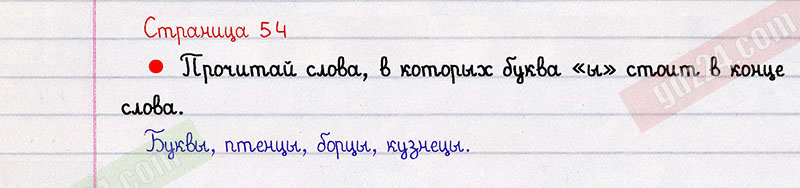 Страница 54
• Прочитай слова, в которых буква «ы» стоит в конце
слова.
Буквы, птенцы, борцы, кузнецы.
gdz24.com